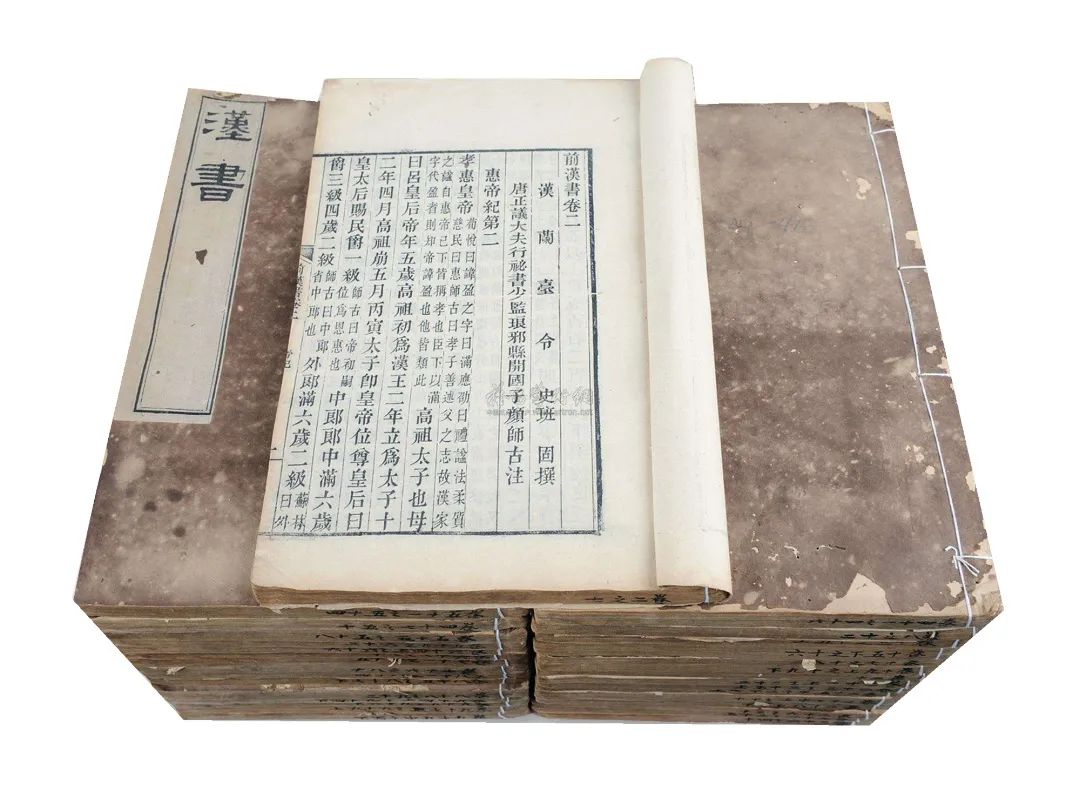 漢書
前漢書卷二
漢蘭臺令史班固撰
唐正議大夫行祕書少監琅邪縣開國子顏師古注
惠帝紀第二
孝惠皇帝荀悅曰諱盈之字曰滿應劭曰禮謚法柔質慈民曰惠師古曰孝子善述父之志故漢家
之謚自惠帝已下皆稱孝也臣下以滿字代盈者則知帝諱盈也他皆類此高祖太子也母
曰呂皇后帝年五歲高祖初爲漢王二年立爲太子十
二年四月高祖崩五月丙寅太子卽皇帝位尊皇后曰
皇太后賜民爵一級師古曰帝初嗣位爲恩惠也中郎郎中滿六歲
爵三級四歲二級師古曰中郎省中郎也外郎滿六歲二級蘇林曰外
前漢書卷二
卷二之七